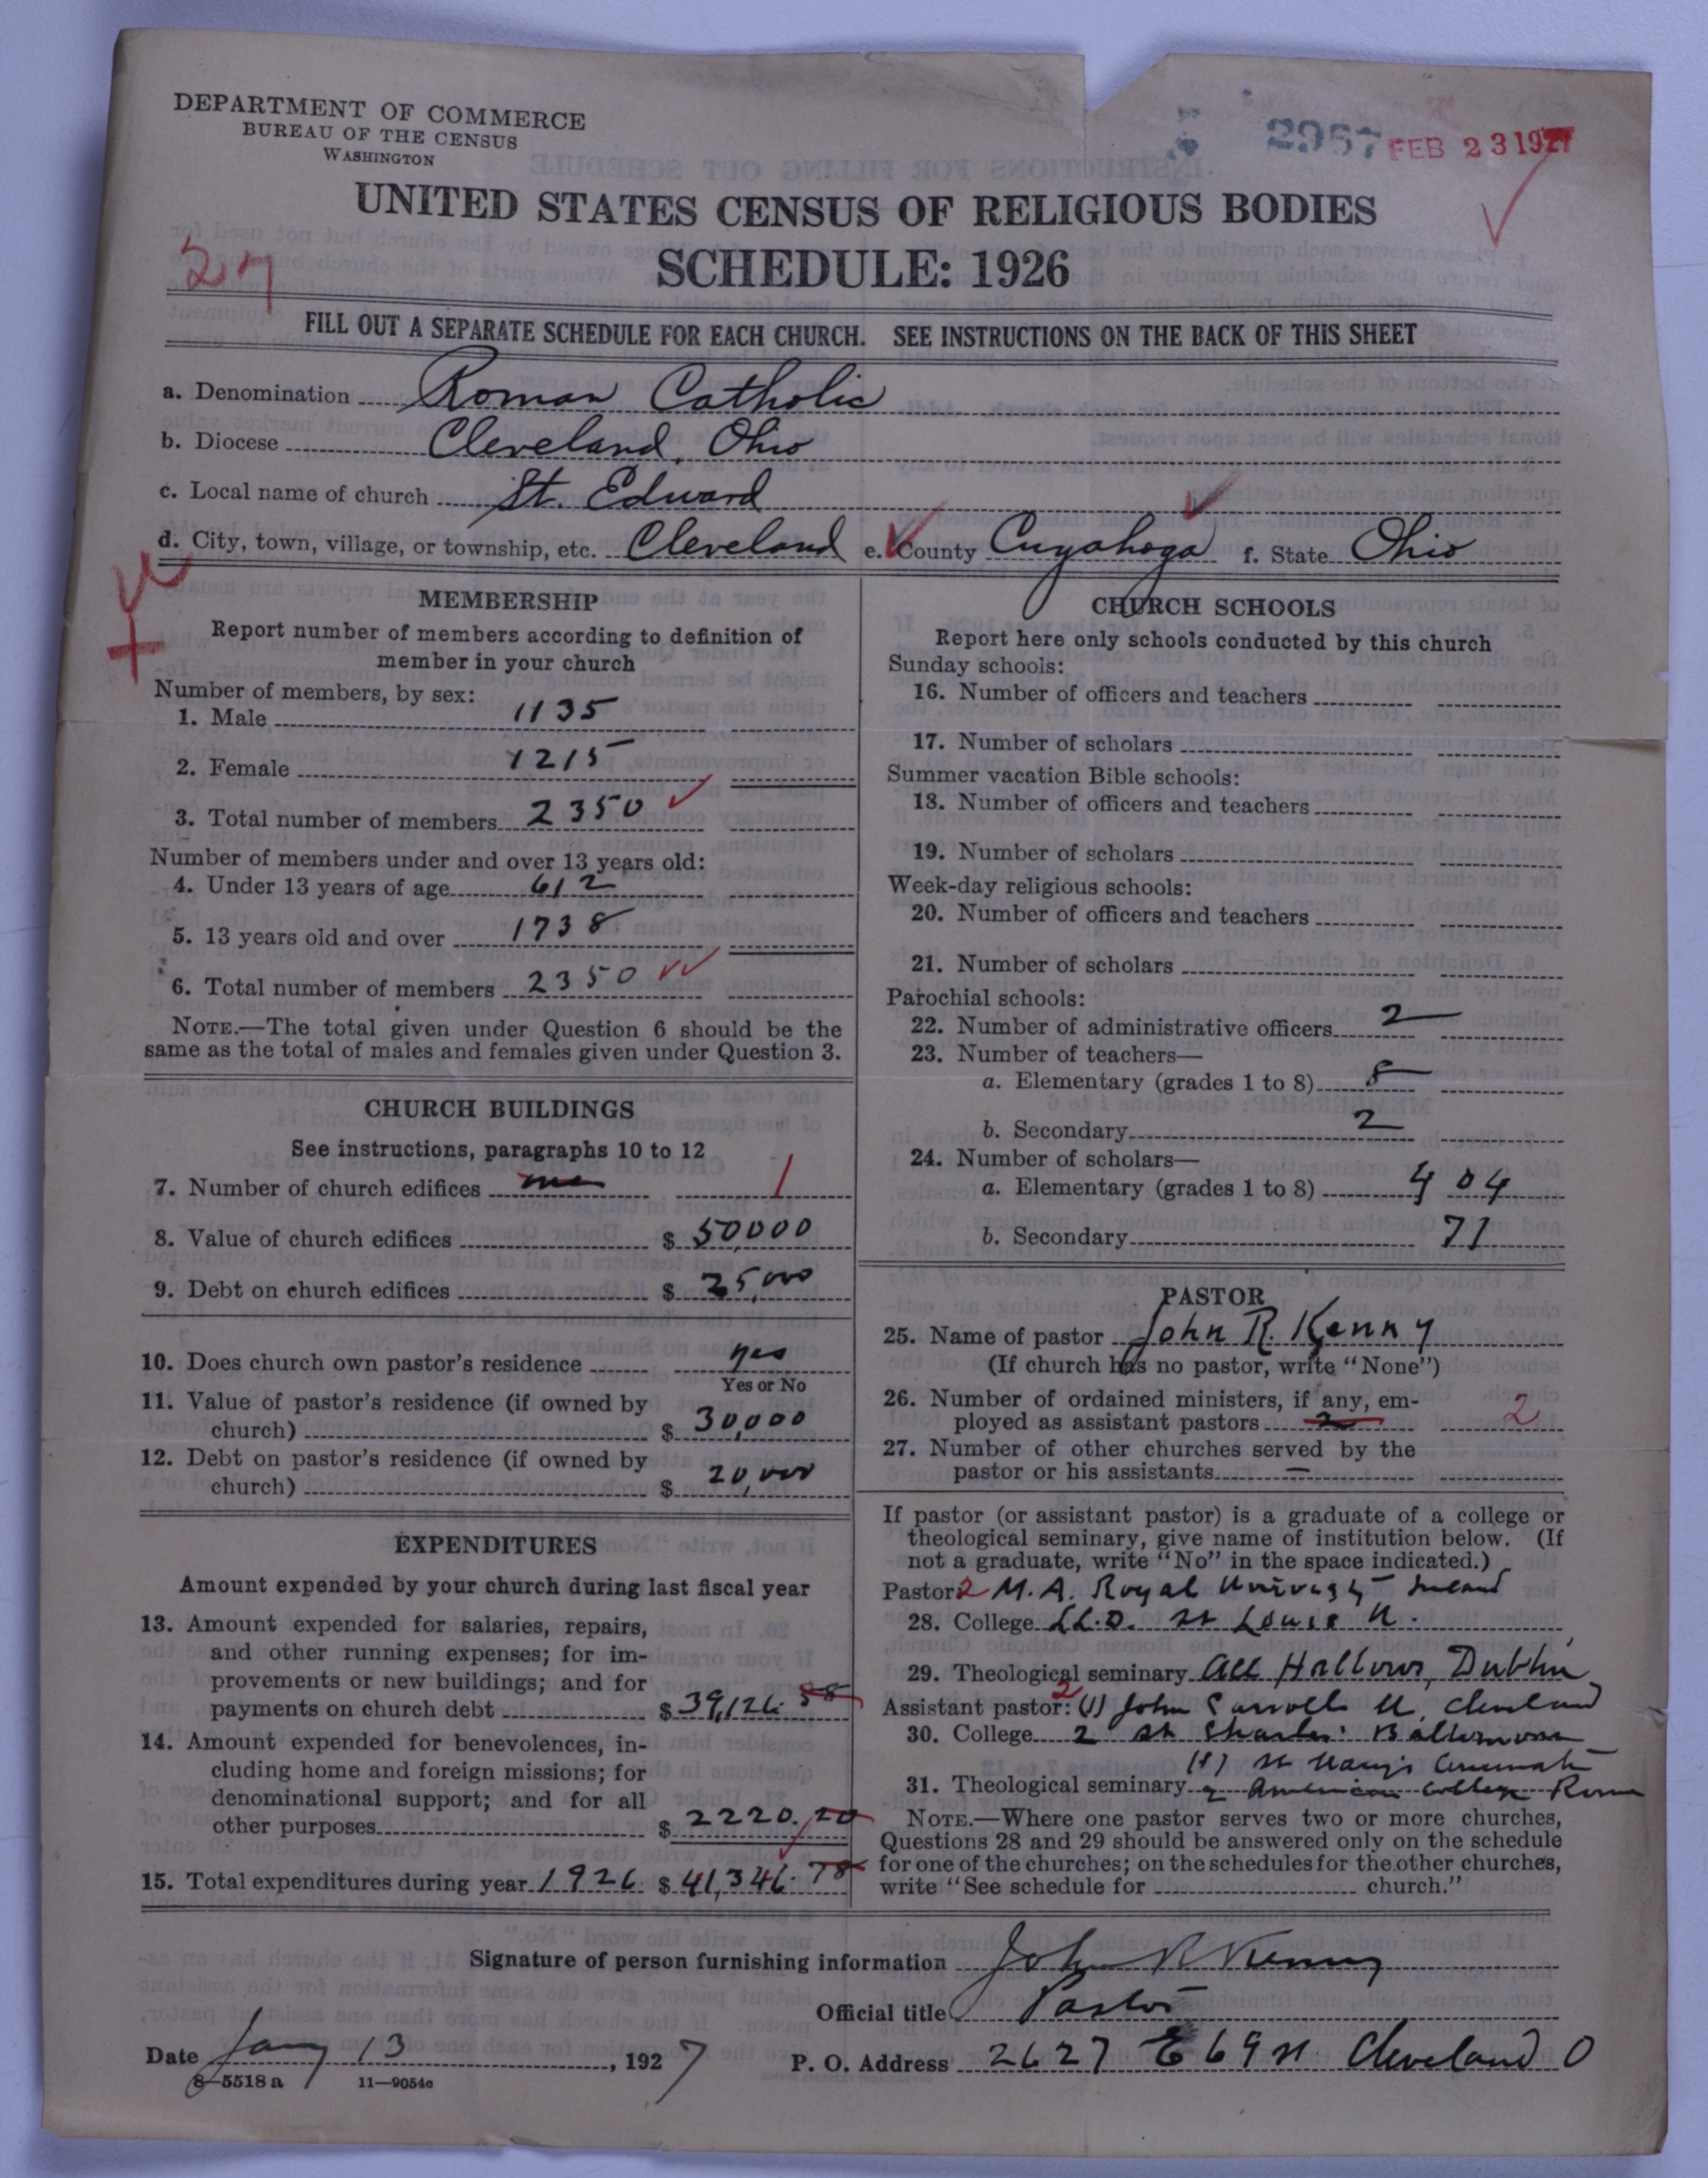 DEPARTMENT OF COMMERCE
BUREAU OF THE CENSUS
WASHINGTON
2967 FEB 23 1927
UNITED STATES CENSUS OF RELIGIOUS BODIES
SCHEDULE: 1926
27
FILL OUT A SEPARATE SCHEDULE FOR EACH CHURCH. SEE INSTRUCTIONS ON THE BACK OF THIS SHEET
a. Denomination Roman Catholic
b. Diocese Cleveland, Ohio
c. Local name of church St. Edward
d. City, town, village, or township, etc. Cleveland e. County Cuyahoga f. State Ohio
MEMBERSHIP
Report number of members according to definition of
member in your church
Number of members, by sex:
1. Male 1135
2. Female 1215
3. Total number of members 2350
Number of members under and over 13 years old:
4. Under 13 years of age 612
5. 13 years old and over 1738
6. Total number of members 2350
NOTE.—The total given under Question 6 should be the
same as the total of males and females given under Question 3.
CHURCH BUILDINGS
See instructions, paragraphs 10 to 12
7. Number of church edifices one 1
8. Value of church edifices $ 50,000
9. Debt on church edifices $ 25,000
10. Does church own pastor's residence yes
Yes or No
11. Value of pastor's residence (if owned by
church) $ 30,000
12. Debt on pastor's residence (if owned by
church) $ 20,000
EXPENDITURES
Amount expended by your church during last fiscal year
13. Amount expended for salaries, repairs,
and other running expenses; for im-
provements or new buildings; and for
payments on church debt $ 39,126.58
14. Amount expended for benevolences, in-
cluding home and foreign missions; for
denominational support; and for all
other purposes $ 2220.20
15. Total expenditures during year 1926 $ 41,346.78
CHURCH SCHOOLS
Report here only schools conducted by this church
Sunday schools:
16. Number of officers and teachers
17. Number of scholars
Summer vacation Bible schools:
18. Number of officers and teachers
19. Number of scholars
Week-day religious schools:
20. Number of officers and teachers
21. Number of scholars
Parochial schools:
22. Number of administrative officers 2
23. Number of teachers—
a. Elementary (grades 1 to 8) 8
b. Secondary 2
24. Number of scholars—
a. Elementary (grades 1 to 8) 404
b. Secondary 71
PASTOR
25. Name of pastor John R. Kenny
(If church has no pastor, write "None")
26. Number of ordained ministers, if any, em-
ployed as assistant pastors 2 2
27. Number of other churches served by the
pastor or his assistants —
If pastor (or assistant pastor) is a graduate of a college or
theological seminary, give name of institution below. (If
not a graduate, write "No" in the space indicated.)
Pastor: 2 M.A. Royal University Ireland
28. College LL.D. St Louis U.
29. Theological seminary All Hallows, Dublin
Assistant pastor: 2 (1) John Carroll U, Cleveland
30. College 2 St Charles' Baltimore
(1) St Mary's Cincinnati
31. Theological seminary 2 American College Rome
NOTE.—Where one pastor serves two or more churches,
Questions 28 and 29 should be answered only on the schedule
for one of the churches; on the schedules for the other churches,
write "See schedule for church."
Signature of person furnishing information John R Kenny
Official title Pastor
Date Jany 13, 1927 P. O. Address 2627 E 69 St Cleveland O
8—5518 a 11—9054c